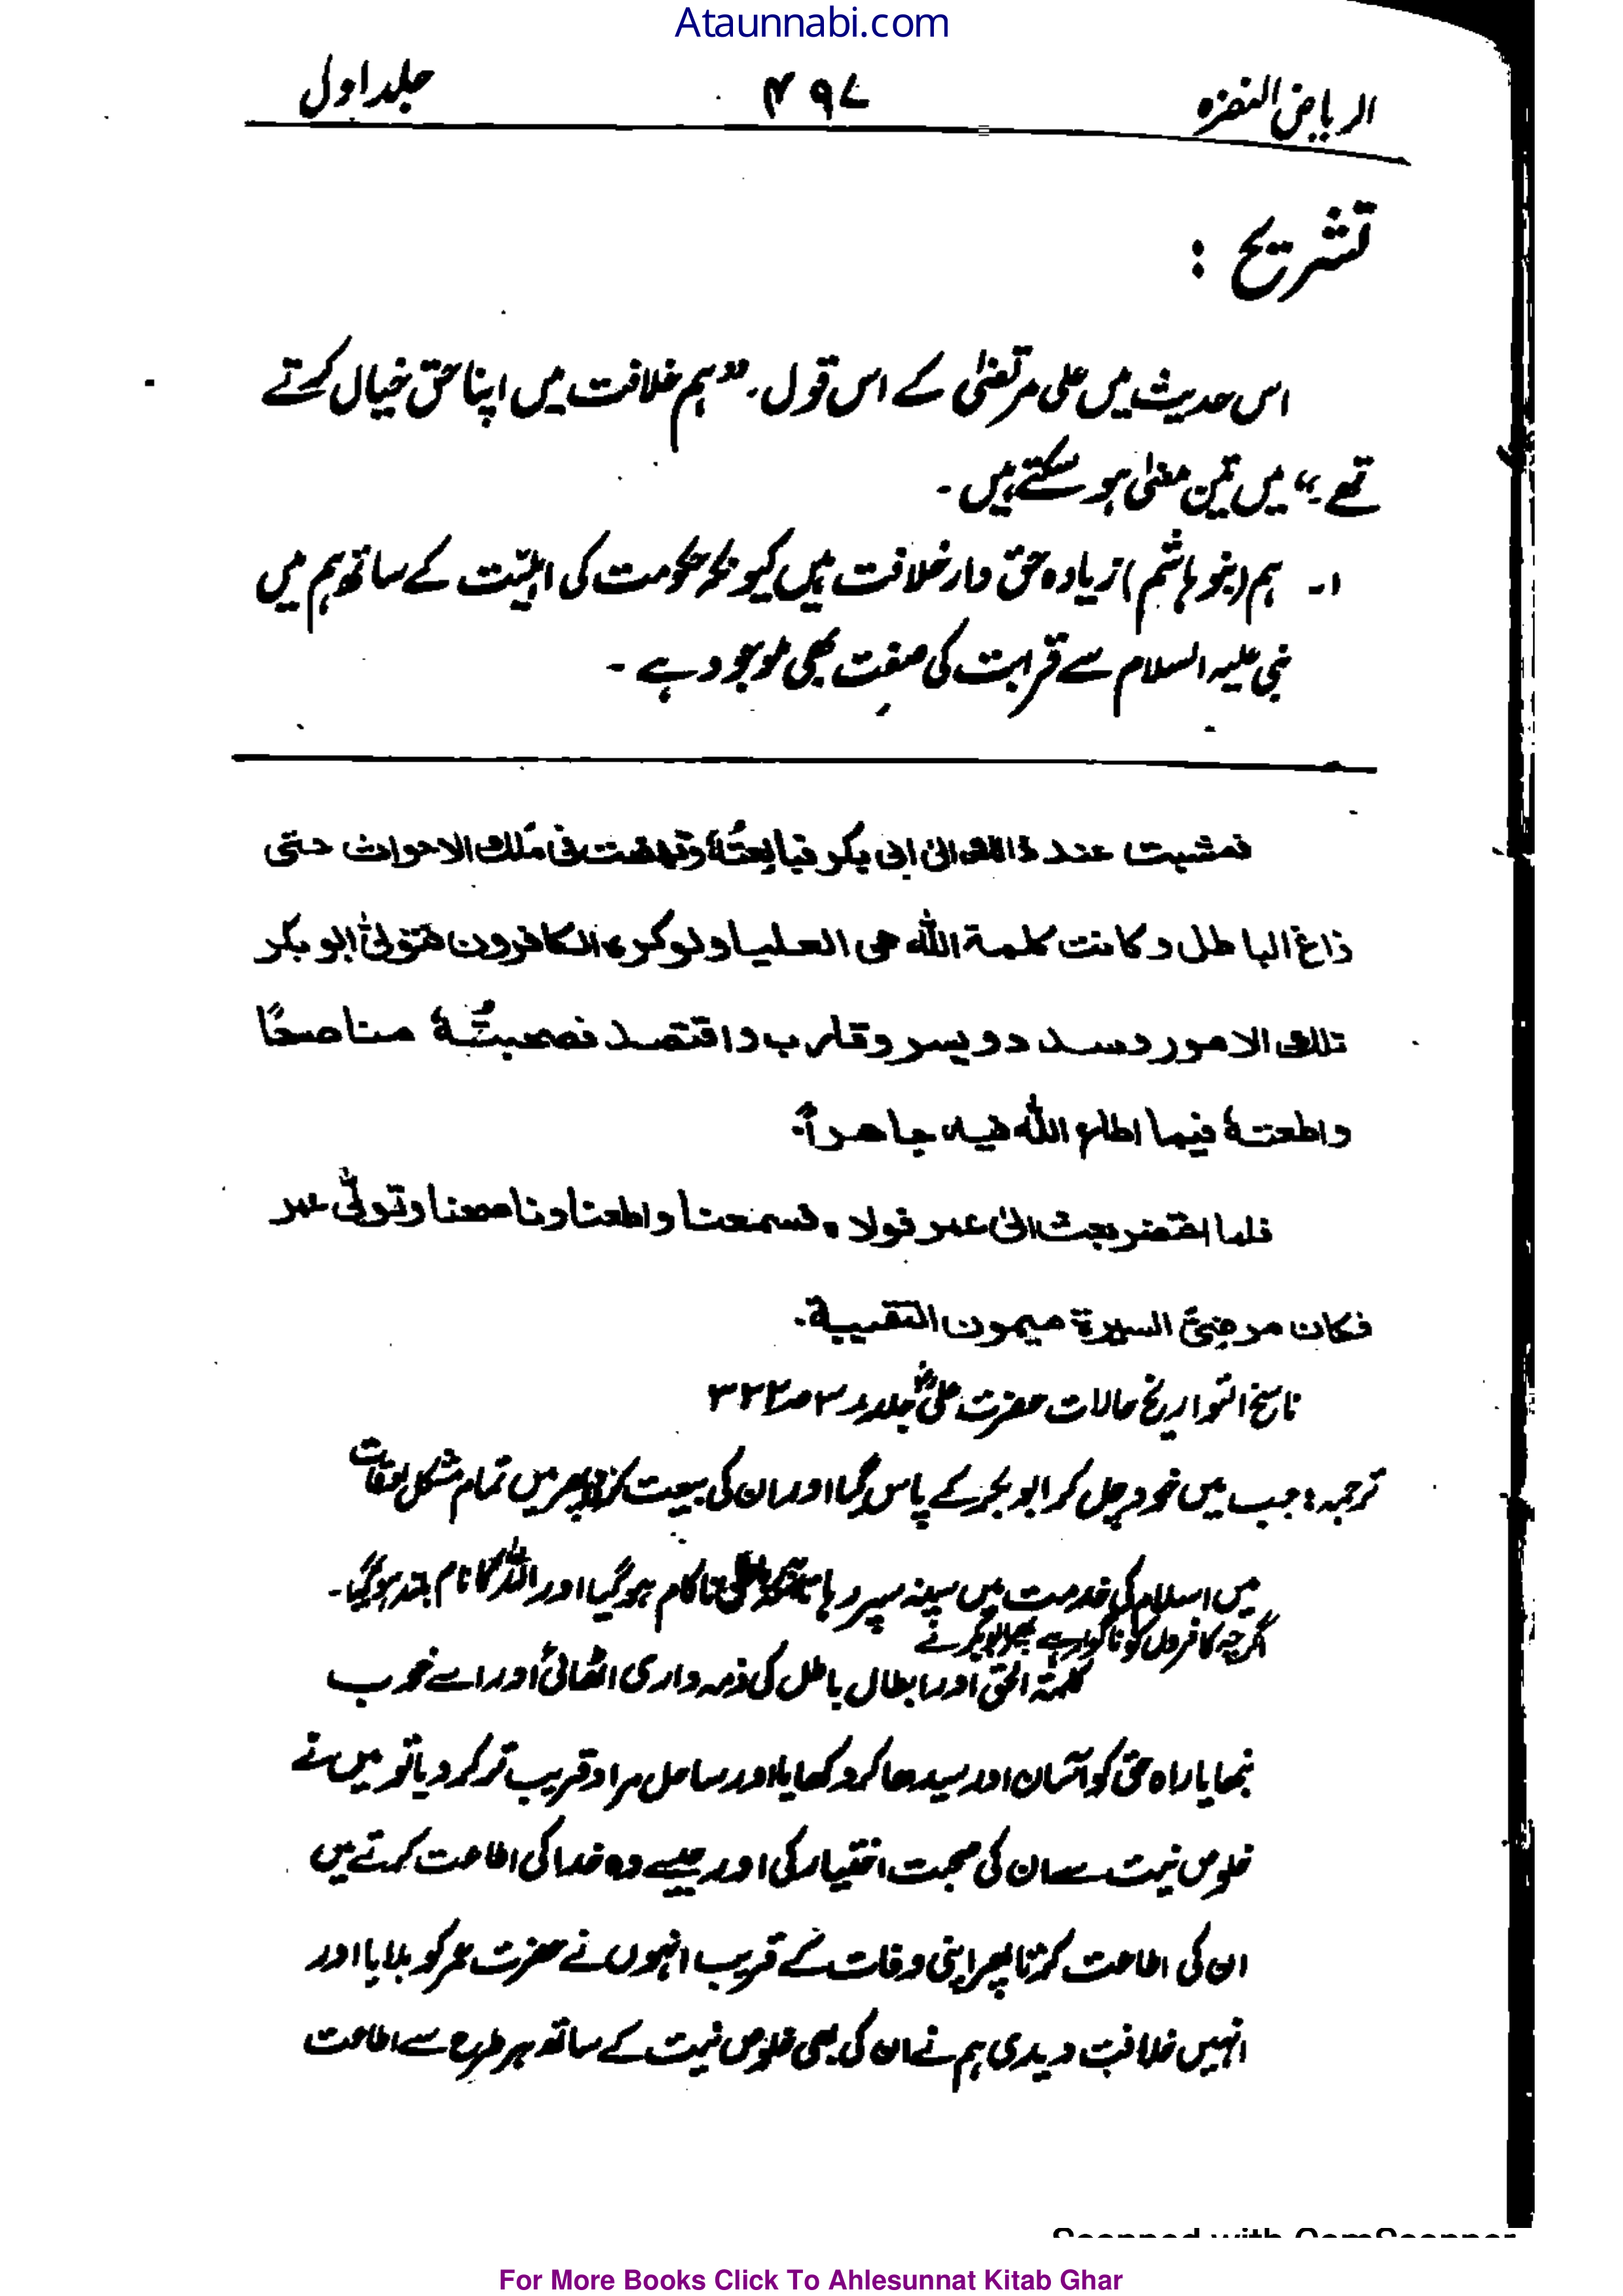 Ataunnabi.com
الریاض النضرہ ۴۹۷ جلد اول
تشریح :
اس حدیث میں علی مرتضیٰ کے اس قول ، ”ہم خلافت میں اپنا حق خیال کرتے
تھے ۔“ میں تین معنیٰ ہو سکتے ہیں ۔
۱۔ ہم (بنو ہاشم) زیادہ حق دار خلافت ہیں کیونکہ حکومت کی اہلیّت کے ساتھ ہم میں
نبی علیہ السلام سے قرابت کی صفت بھی موجود ہے ۔
فمشیت عند ذالک الیٰ ابی بکر فبایعتُہٗ ونہضت فی تلک الاحداث حتی
زاغ الباطل و کانت کلمۃ اللہ ھی العلیا ولو کرہ الکافرون فتولیّٰ ابو بکر
تلک الامور وسدد ویسر وقارب واقتصد فصحبتُہٗ مناصحًا
واطعتہٗ فیما اطاع اللہ فیہ جاھداً۔
فلما احتضر بعث الیٰ عمر فولاہ فسمعنا واطعنا وناصحنا وتولّٰی عمر
فکان مرضیَّ السیرۃ میمون النقیبۃ۔
ناسخ التواریخ حالات حضرت علیؓ جلد ۳ ص ۳۲۲
ترجمہ : جب میں خود چل کر ابو بکر کے پاس گیا اور ان کی بیعت کر پھر میں تمام مشکل اوقات
میں اسلام کی خدمت میں سینہ سپر رہا ناکام ہو گیا اور اللہ کا نام بلند ہو گیا۔
اگرچہ کافروں کو ناگوار ہے پھر ابو بکر نے
کلمۃ الحق اور ابطال باطل کی ذمہ داری اٹھائی اور اسے خوب
نبھایا راہ حق کو آسان اور سیدھا کر دکھایا اور ساحل مراد قریب تر کر دیا تو میں نے
خلوص نیت سے ان کی صحبت اختیار کی اور جیسے وہ خدا کی اطاعت کرتے میں
ان کی اطاعت کرتا پھر اپنی وفات کے قریب انہوں نے حضرت عمر کو بلایا اور
انہیں خلافت دیدی ہم نے ان کی بھی خلوص نیت کے ساتھ ہر طرح سے اطاعت
Scanned with CamScanner
For More Books Click To Ahlesunnat Kitab Ghar